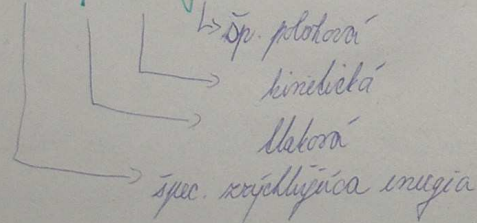 šp. polohová
kinetická
tlaková
špec. zrýchľujúca energia